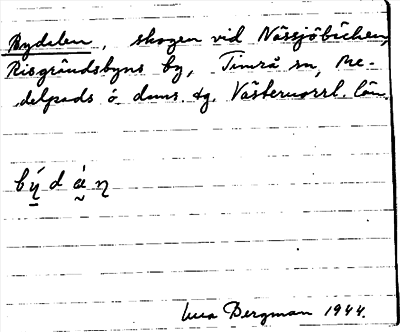 Bydalen, skogen vid Nässjöbäcken,
Risgrändsbyns by, Timrå sn, Me-
delpads ö. doms. tg. Västernorrl. län.
bý̱ d á̰ ŋ
Bergman 1944.